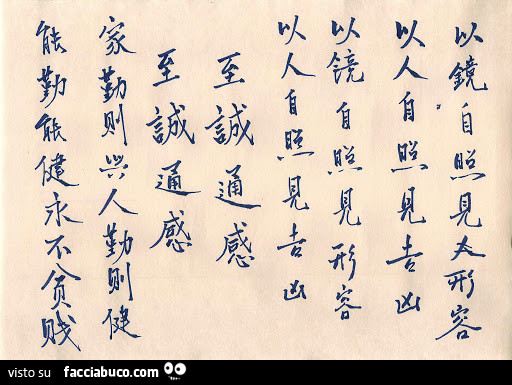 以鏡自照見形容
以人自照見吉凶
以鏡自照見形容
以人自照見吉凶
至誠通感
至誠通感
家勤則興人勤則健
能勤能健永不貧賤
visto su facciabuco.com